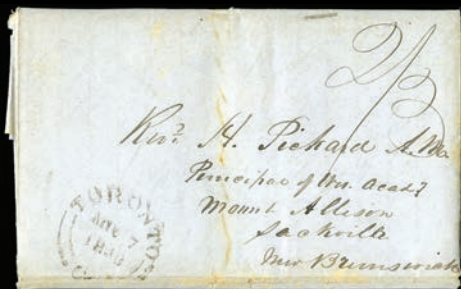 2/3
Revd. H. Pickard A.M.
Principal of Wn. Acady
Mount Allison
Sackville
New Brunswick
TORONTO
AUG 7